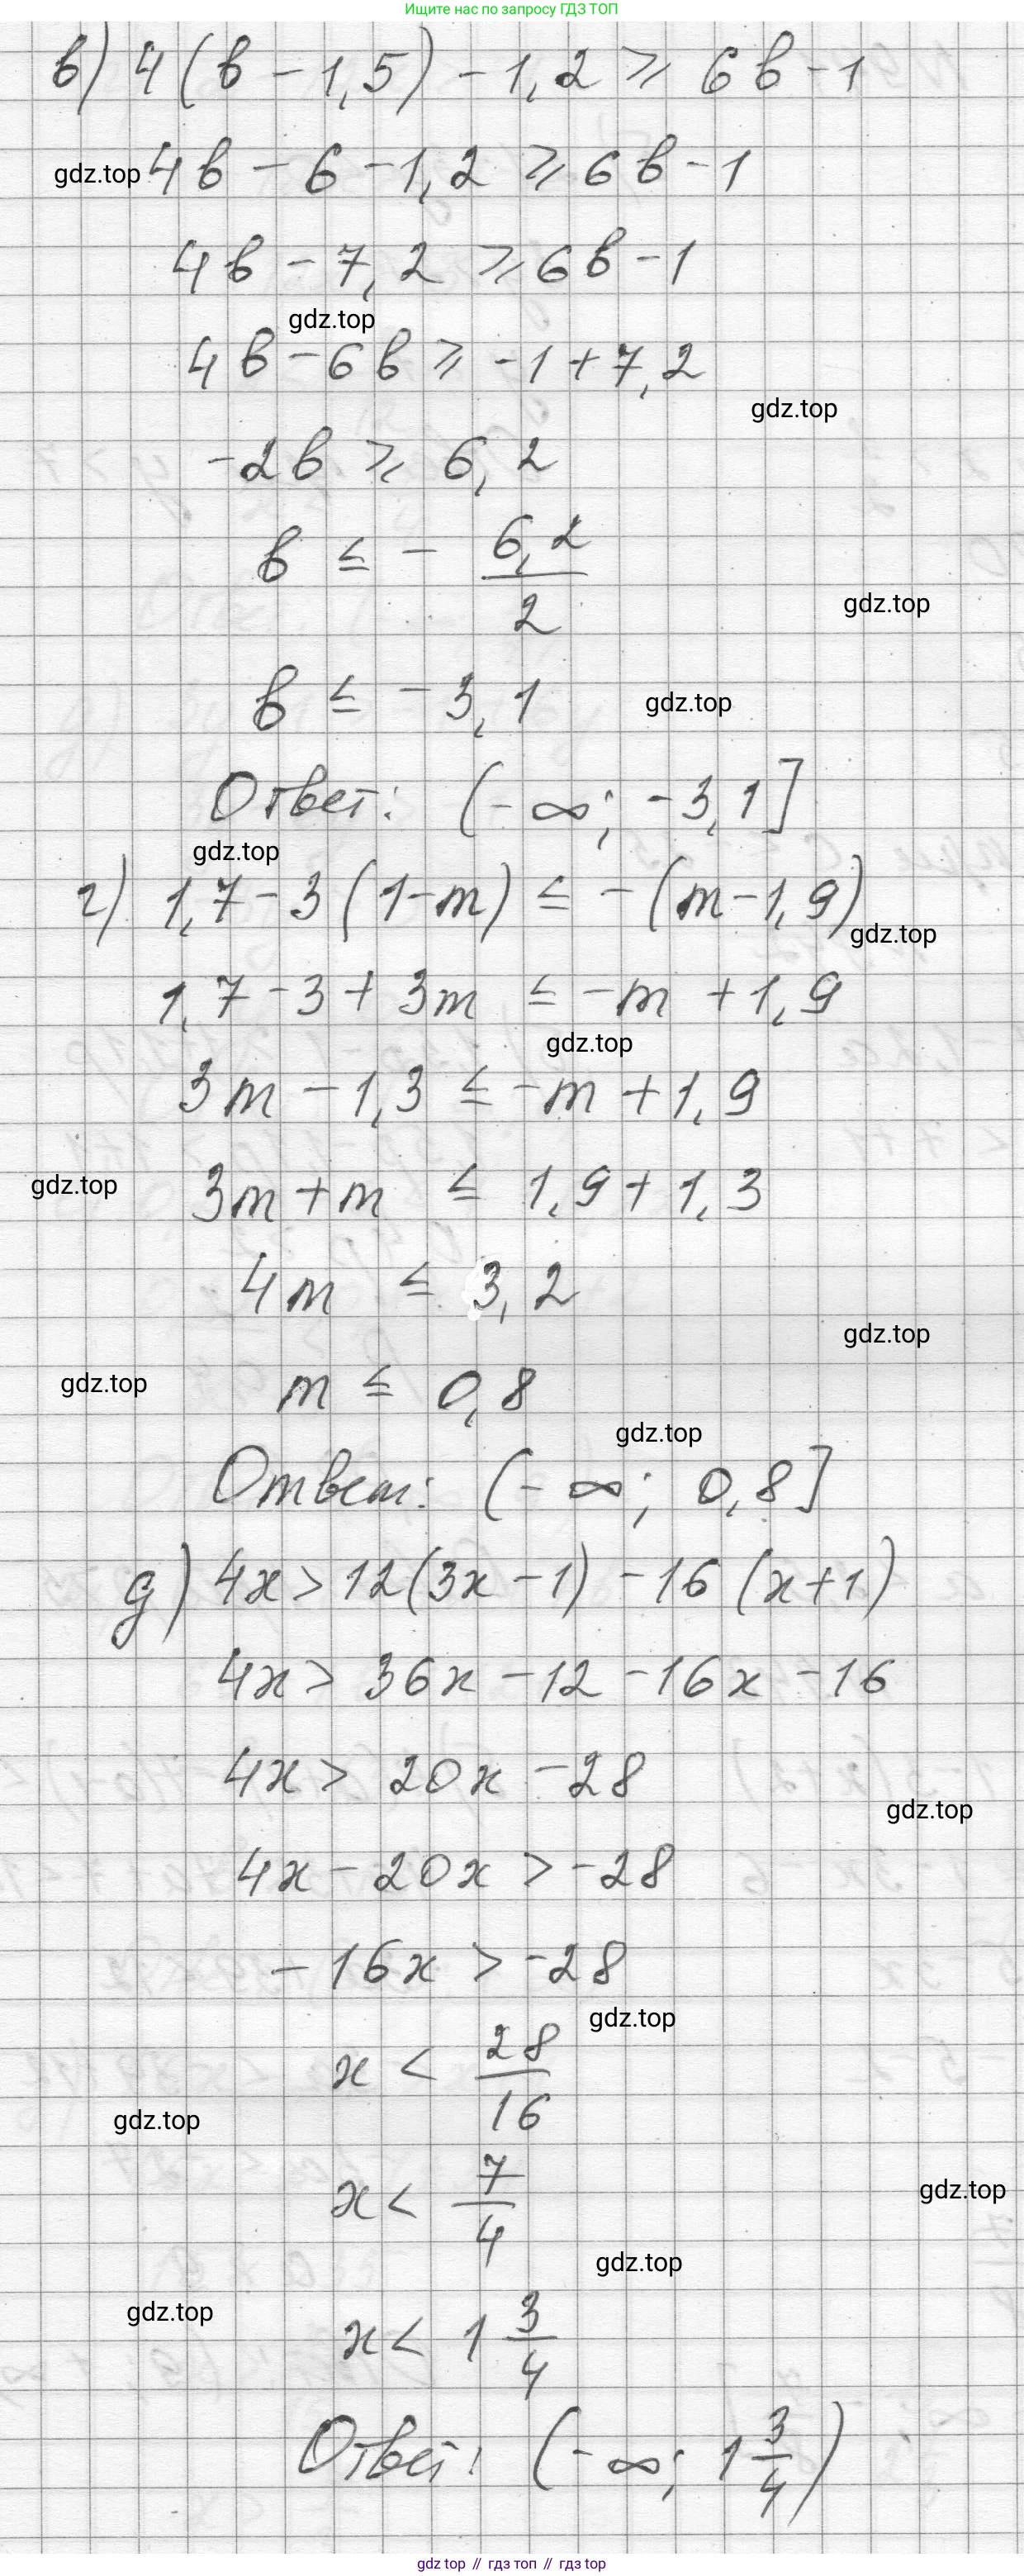 Ищите нас по запросу ГДЗ ТОП
в) 4(в - 1,5) - 1,2 ⩾ 6в - 1
gdz.top 4в - 6 - 1,2 ⩾ 6в - 1
4в - 7,2 ⩾ 6в - 1
gdz.top
4в - 6в ⩾ -1 + 7,2
gdz.top
-2в ⩾ 6,2
в ≤ - 6,2/2
gdz.top
в ≤ -3,1 gdz.top
Ответ: (-∞; -3,1]
gdz.top
г) 1,7 - 3(1-m) ≤ -(m-1,9)
gdz.top
1,7 - 3 + 3m ≤ -m + 1,9
gdz.top
3m - 1,3 ≤ -m + 1,9
gdz.top 3m + m ≤ 1,9 + 1,3
4m ≤ 3,2
gdz.top
gdz.top m ≤ 0,8
gdz.top
Ответ: (-∞; 0,8]
д) 4x > 12(3x - 1) - 16(x+1)
4x > 36x - 12 - 16x - 16
4x > 20x - 28
gdz.top
4x - 20x > -28
-16x > -28
gdz.top
x < 28/16
gdz.top
x < 7/4
gdz.top
gdz.top
gdz.top
x < 1 3/4
Ответ: (-∞; 1 3/4)
gdz top // гдз топ // гдз top